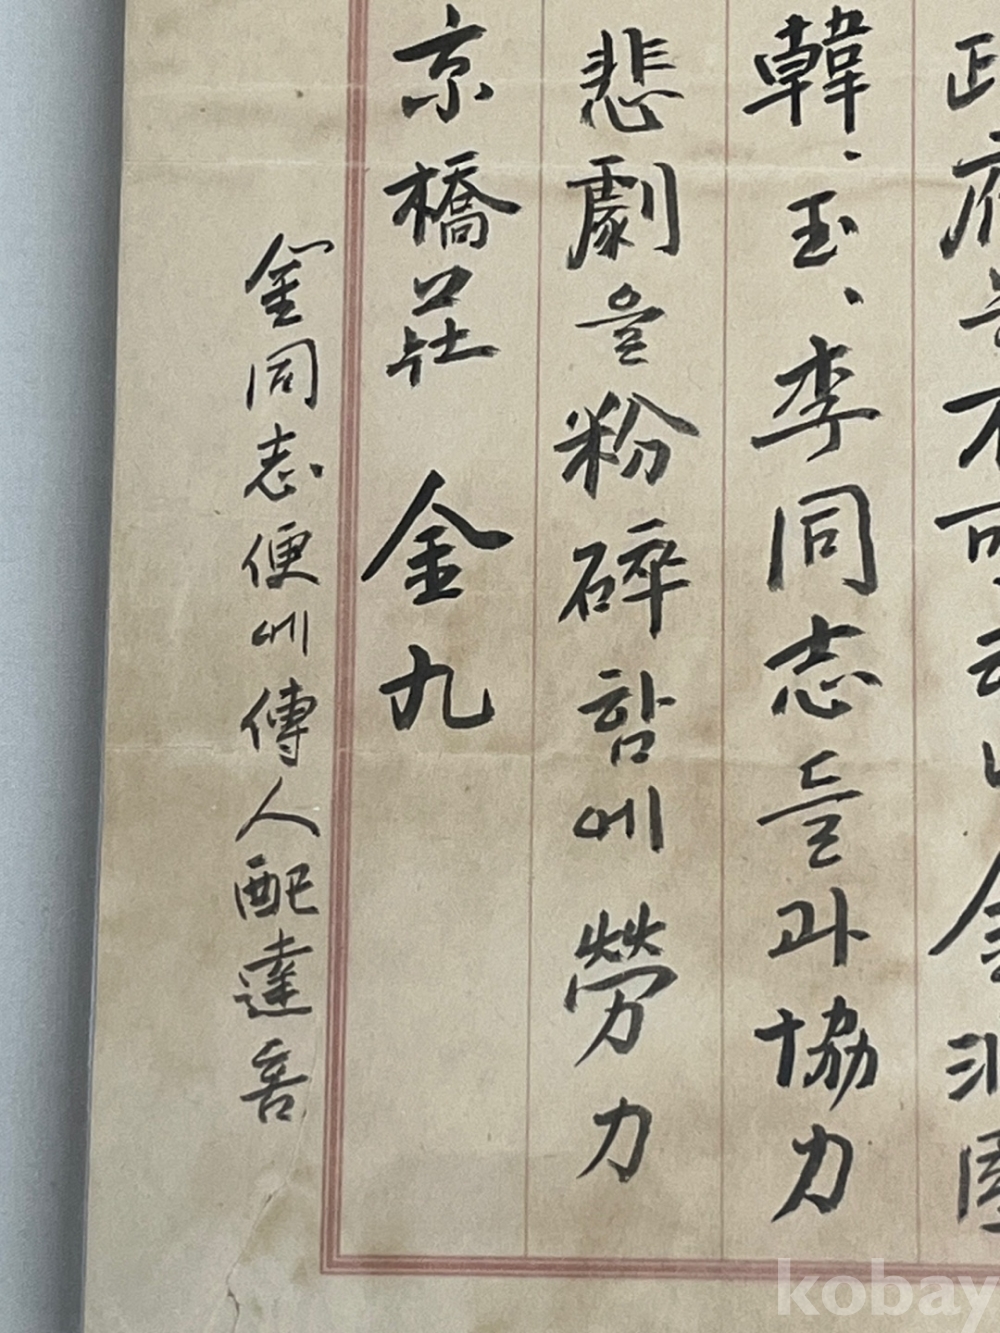 政府는不可
韓、玉、李同志들과協力
悲劇을粉碎함에勞力
京橋莊 金九
金同志便에傳人配達
kobay